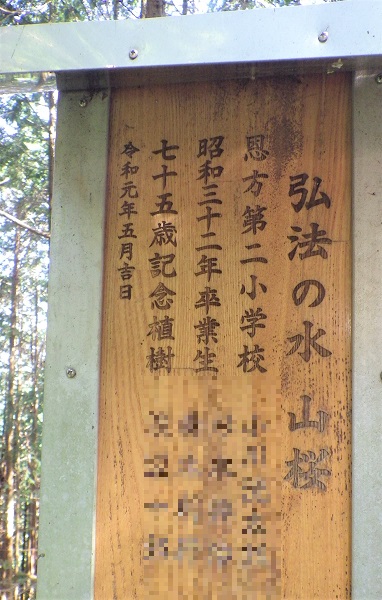 弘法の水 山桜
恩方第二小学校
昭和三十二年卒業生
七十五歳記念植樹
令和元年五月吉日